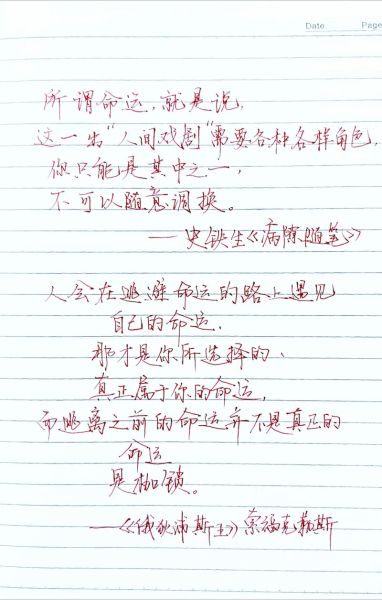 Date. Page
所谓命运，就是说，
这一出"人间戏剧"需要各种各样角色，
你只能是其中之一，
不可以随意调换。
——史铁生《病隙随笔》
人会在逃避命运的路上遇见
自己的命运，
那才是你所选择的、
真正属于你的命运，
而逃离之前的命运并不是真正的
命运
是枷锁。
——《俄狄浦斯王》索福克勒斯